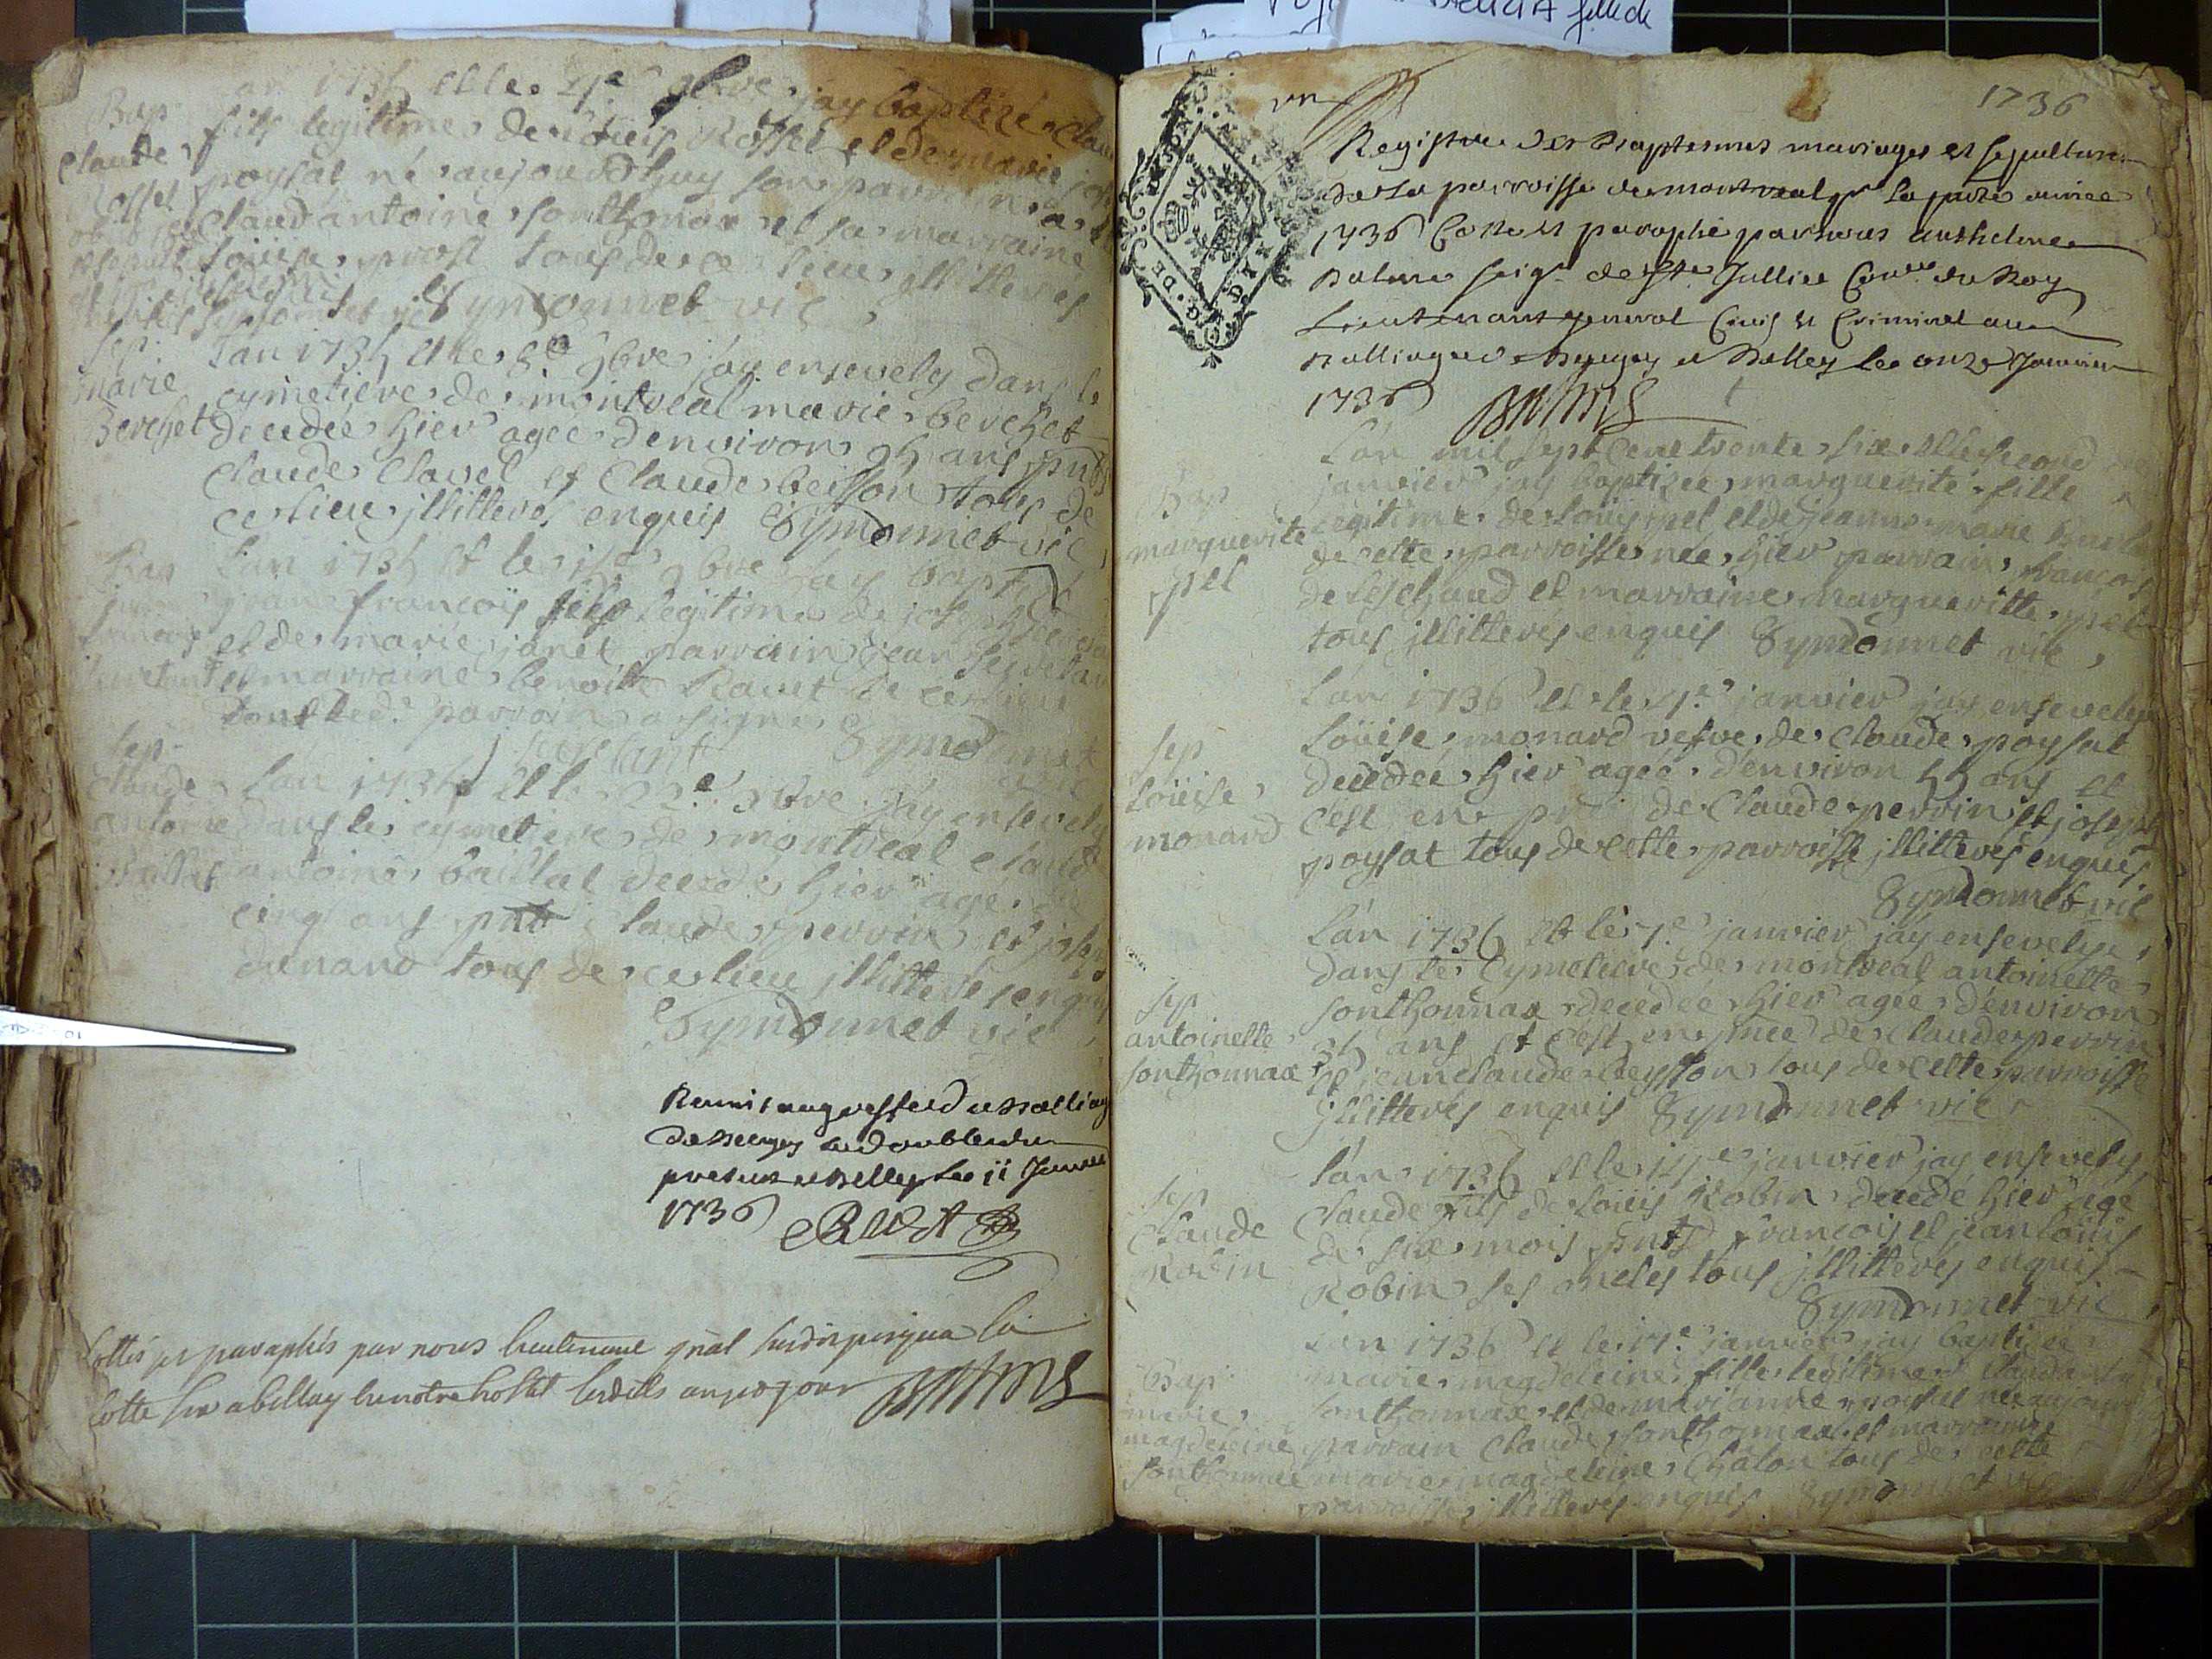 fille de
Bap
claude
Rosset
an 1735 et le 4e 9bre jay baptizé
fils legitime de Louis Rosset et de marie
poysat né aujourdhuy son parrain a
claud antoine sonthonax et sa marraine
Loüise prost tous de ce lieu illitterés
Symonnet vic
Sep
marie
Berchet
Lan 1735 et le 8e 9bre jay ensevely dans le
cymetiere de montreal marie berchet
decedée hier agée denviron 95 ans pnts
Claude Clavel et Claude beisson tous de
ce lieu illitterés enquis Symonnet vic
Bap
jean
francois
Lan 1735 et le 9bre jay baptizé
jean françois fils legitime de joseph
et de marie janet parrain jean
et marraine benoitte Ravet de ce lieu
led. parrain a signé
secretant Symonnet
Sep
claude
antoine
baillat
Lan 1735 et le 22e 9bre jay ensevely
dans le cymetiere de montreal claude
antoine baillat decedé hier agé de
cinq ans pnts claude perrin et joseph
dunand tous de ce lieu illitterés enquis
Symonnet vic
Remis au greffe du Balliage
de Beugey le double du
present a Belley le 11 Janvier
1736
Cottés et paraphés par nous lieutenant gnal susdit jusqua la
cotte six a bellay en notre hostel lesdits an et jour BALME
1736
Registre des Baptesmes mariages et sepultures
de la parroisse de montreal pr la pnte année
1736 Cotté et paraphé par nous Anthelme
Balme seigr de Ste Jullie Coner du Roy
Lieutenant general Civil et Criminel au
Balliage de Beugey a Belley le onze Janvier
1736
BALME
Bap
marguerite
pel
Lán mil sept cent trente six et le second
janvier jay baptizée marguerite fille
legitime de Loüis pel et de jeanne marie
de cette parroisse née hier parrain francois
de Leschaud et marraine marguerite pel
tous illitterés enquis Symonnet vic
Sep
Loüise
monard
Lán 1736 et le 4e janvier jay ensevelye
Loüise monard vefve de Claude poysat
decedée hier agée d'environ 55 ans et
cést en pnce de Claude perrin et joseph
poysat tous de cette parroisse illitterés enquis
Symonnet vic
Sep
antoinette
sonthonnax
Lán 1736 et le 7e janvier jáy ensevelye
dans le Cymetiere de montreal antoinette
sonthonnax decedée hier agée d'environ
35 ans et cést en pnce de Claude perrin
et jean claude beysson tous de cette parroisse
illitterés enquis Symonnet vic
Sep
Claude
Robin
Lán 1736 et le janvier jay ensevely
Claude fils de Loüis Robin decedé hier agé
de six mois pnts francois et jean loüis
Robin ses oncles tous illitterés enquis
Symonnet vic
Bap
marie
magdeleine
sonthonnax
Lán 1736 et le 17e janvier jay baptizée
marie magdeleine fille legitime d
sonthonnax et de marianne née
parrain Claude sonthonnax et marraine
marie magdeleine Châlon tous de cette
parroisse illitterés enquis Symonnet vic